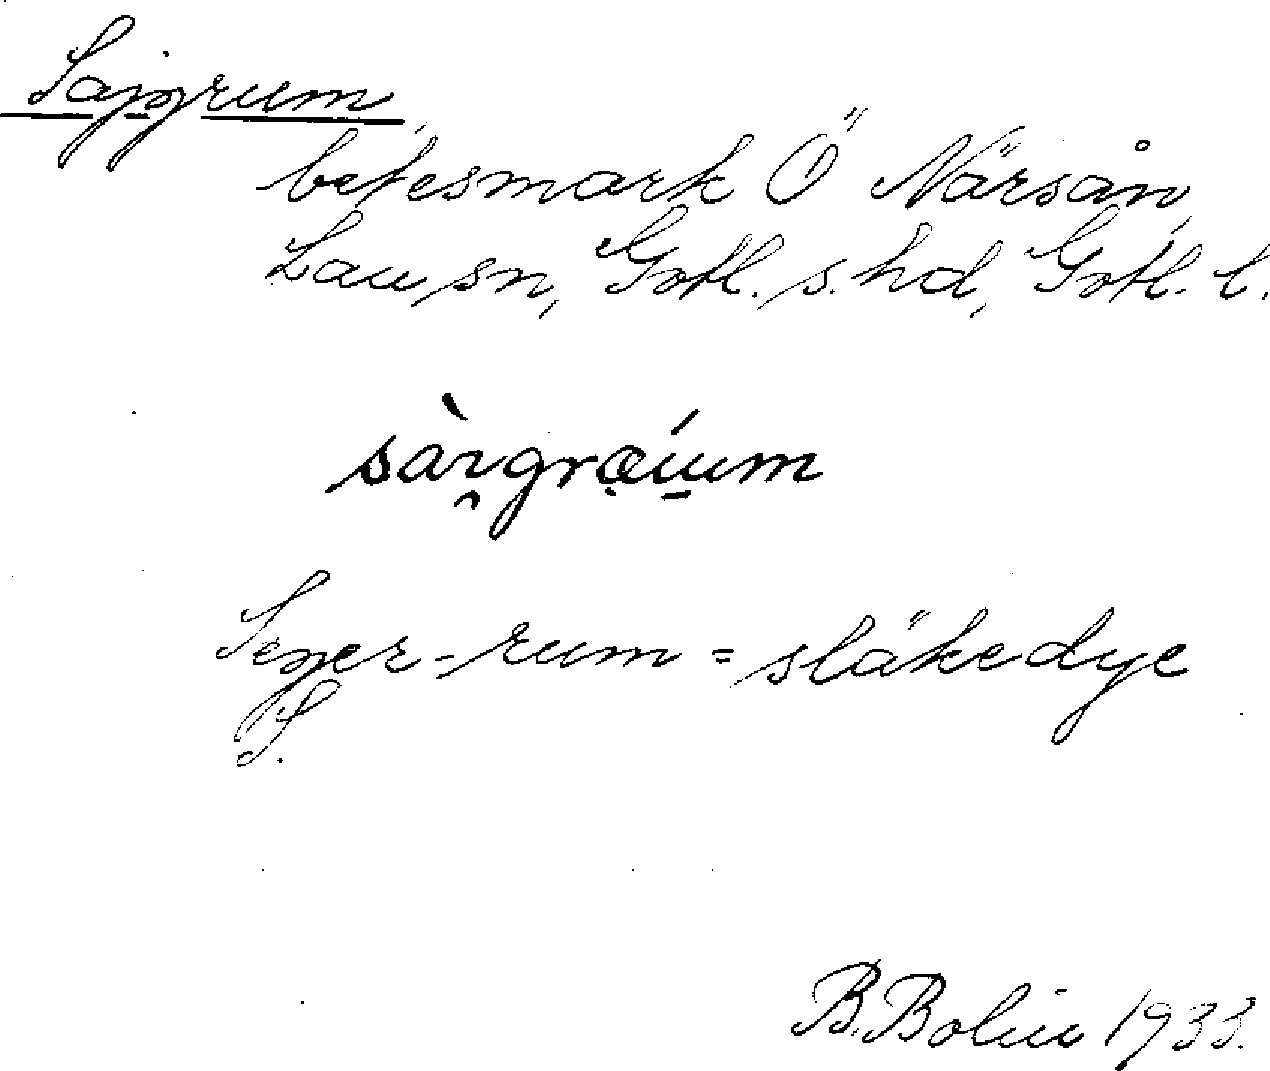 Sajgrum,
betesmark Ö Närsån,
Lau sn, Gotl. s. hd, Gotl. l.
Seger-rum = släkedye
S.
B. Bolin 1933.